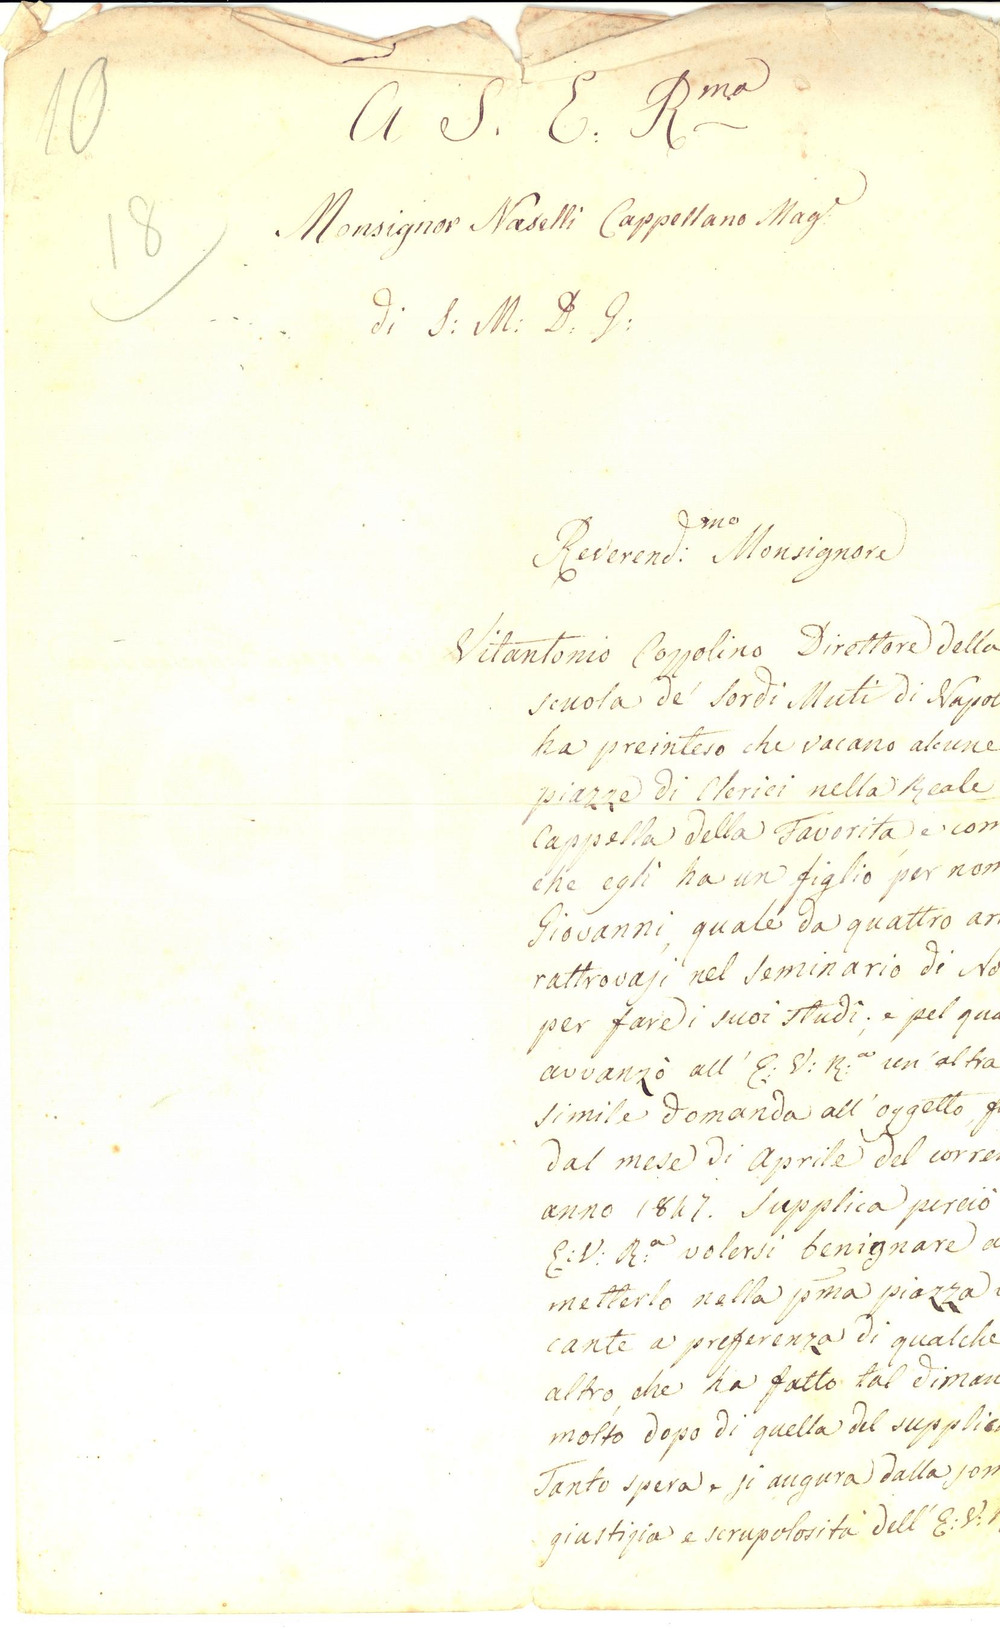 10
18
A S. E. Rma
Monsignor Naselli Cappellano Magr.
di S: M: D. G:
Reverend:mo Monsignore
Vitantonio Cozzolino Direttore della
scuola de' Sordi Muti di Napol
ha preinteso che vacano alcune
piazze di Clerici nella Reale
Cappella della Favorita, e com
che egli ha un figlio per nom
Giovanni, quale da quattro an
rattrovasi nel Seminario di No
per fare i suoi studi; e pel qua
avvanzò all' E: V: R:a un' altra
simile domanda all' oggetto, f
dal mese di Aprile del corren
anno 1847. Supplica perciò
E: V: R:a volersi benignare a
metterlo nella pma piazza
cante a preferenza di qualche
altro, che ha fatto tal diman
molto dopo di quella del supplic
Tanto spera e si augura dalla som
giustizia e scrupolosità dell' E: V: R